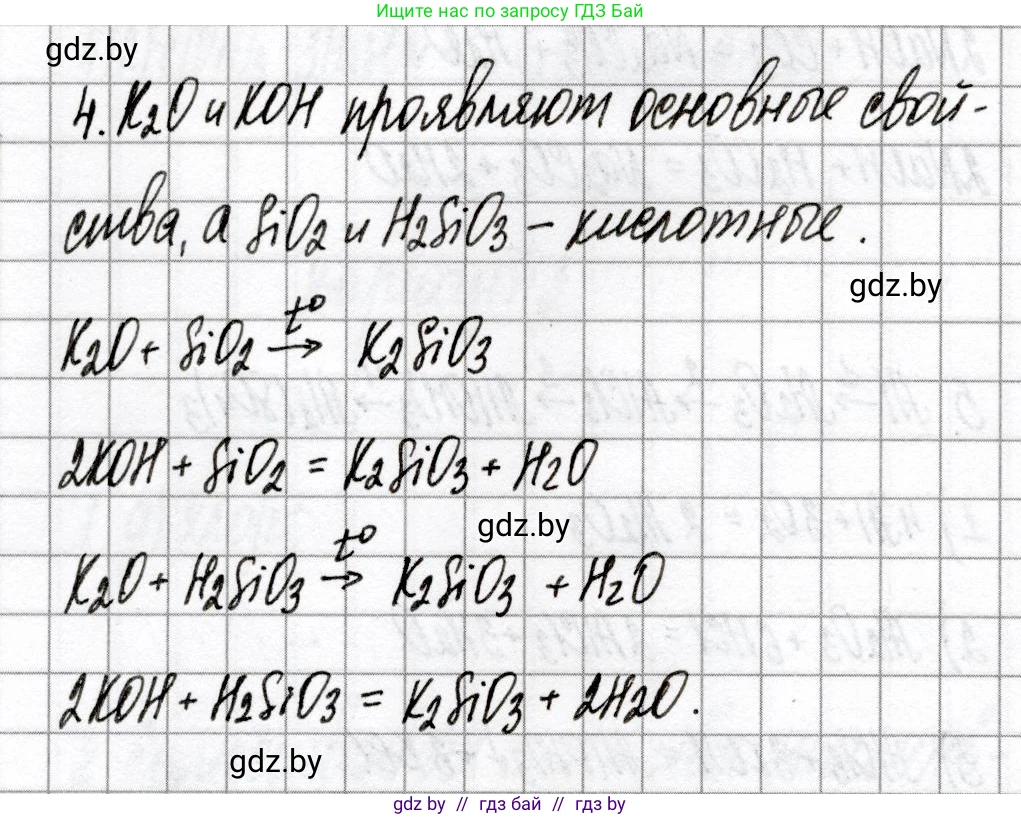 Ищите нас по запросу ГДЗ Бай
gdz.by
4. K₂O и KOH проявляют основные свой-
ства, а SiO₂ и H₂SiO₃ – кислотные.
gdz.by
K₂O + SiO₂ →t° K₂SiO₃
2KOH + SiO₂ = K₂SiO₃ + H₂O
gdz.by
K₂O + H₂SiO₃ →t° K₂SiO₃ + H₂O
2KOH + H₂SiO₃ = K₂SiO₃ + 2H₂O.
gdz.by
gdz by // гдз бай // гдз by